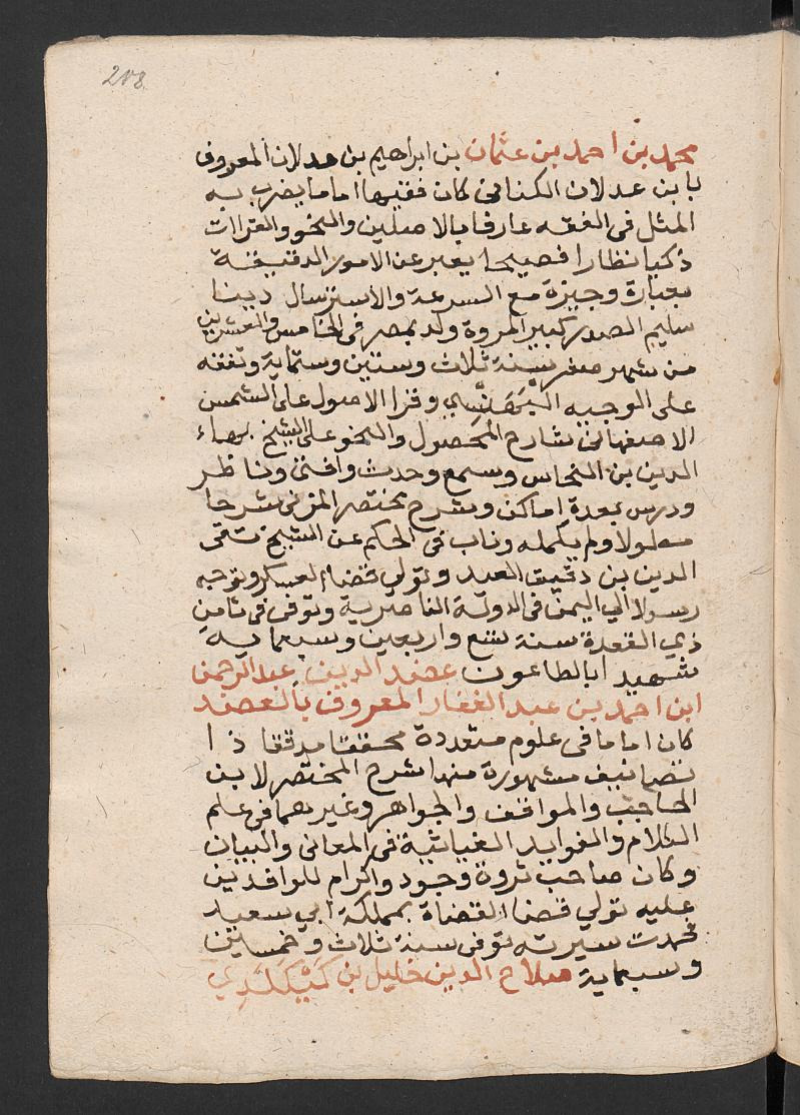 208
محمد بن احمد بن عثمان بن ابراهيم بن عدلان المعروف
بابن عدلان الكناني كان فقيها اماما يضرب به
المثل في الفقه عارفا بالاصلين والنحو والقراات
ذكيا نظارا فصيحا يعبر عن الامور الدقيقة
بعبارة وجيزة مع السرعة والاسترسال دينا
سليم الصدر كبير المروة ولد بمصر في الخامس والعشرين
من شهر صفر سنة ثلاث وستين وستماية وتفقه
على الوجيه البَهَنَسي وقرا الاصول على الشمس
الاصفهاني شارح المحصول والنحو على الشيخ بهاء
الدين بن النحاس وسمع وحدث وافتى وناظر
ودرس بعدة اماكن وشرح مختصر المزني شرحا
مطولا ولم يكمله وناب في الحكم عن الشيخ تقي
الدين بن دقيق العيد وتولي قضاء العسكر وتوجه
رسولا الي اليمن في الدولة الناصرية وتوفى في ثامن
ذي القعدة سنة تسع واربعين وسبعماية
شهيدا بالطاعون عضد الدين عبد الرحمن
ابن احمد بن عبد الغفار المعروف بالعضد
كان اماما في علوم متعددة محققا مدققا ذا
تصانيف مشهورة منها شرح المختصر لابن
الحاجب والمواقف والجواهر وغيرهما في علم
الكلام والفوايد الغياثية في المعاني والبيان
وكان صاحب ثروة وجود واكرام للوافدين
عليه تولي قضا القضاة بمملكة ابي سعيد
فحمدت سيرته توفى سنة ثلاث وخمسين
وسبعماية صلاح الدين خليل بن كَيْكَلَدِي